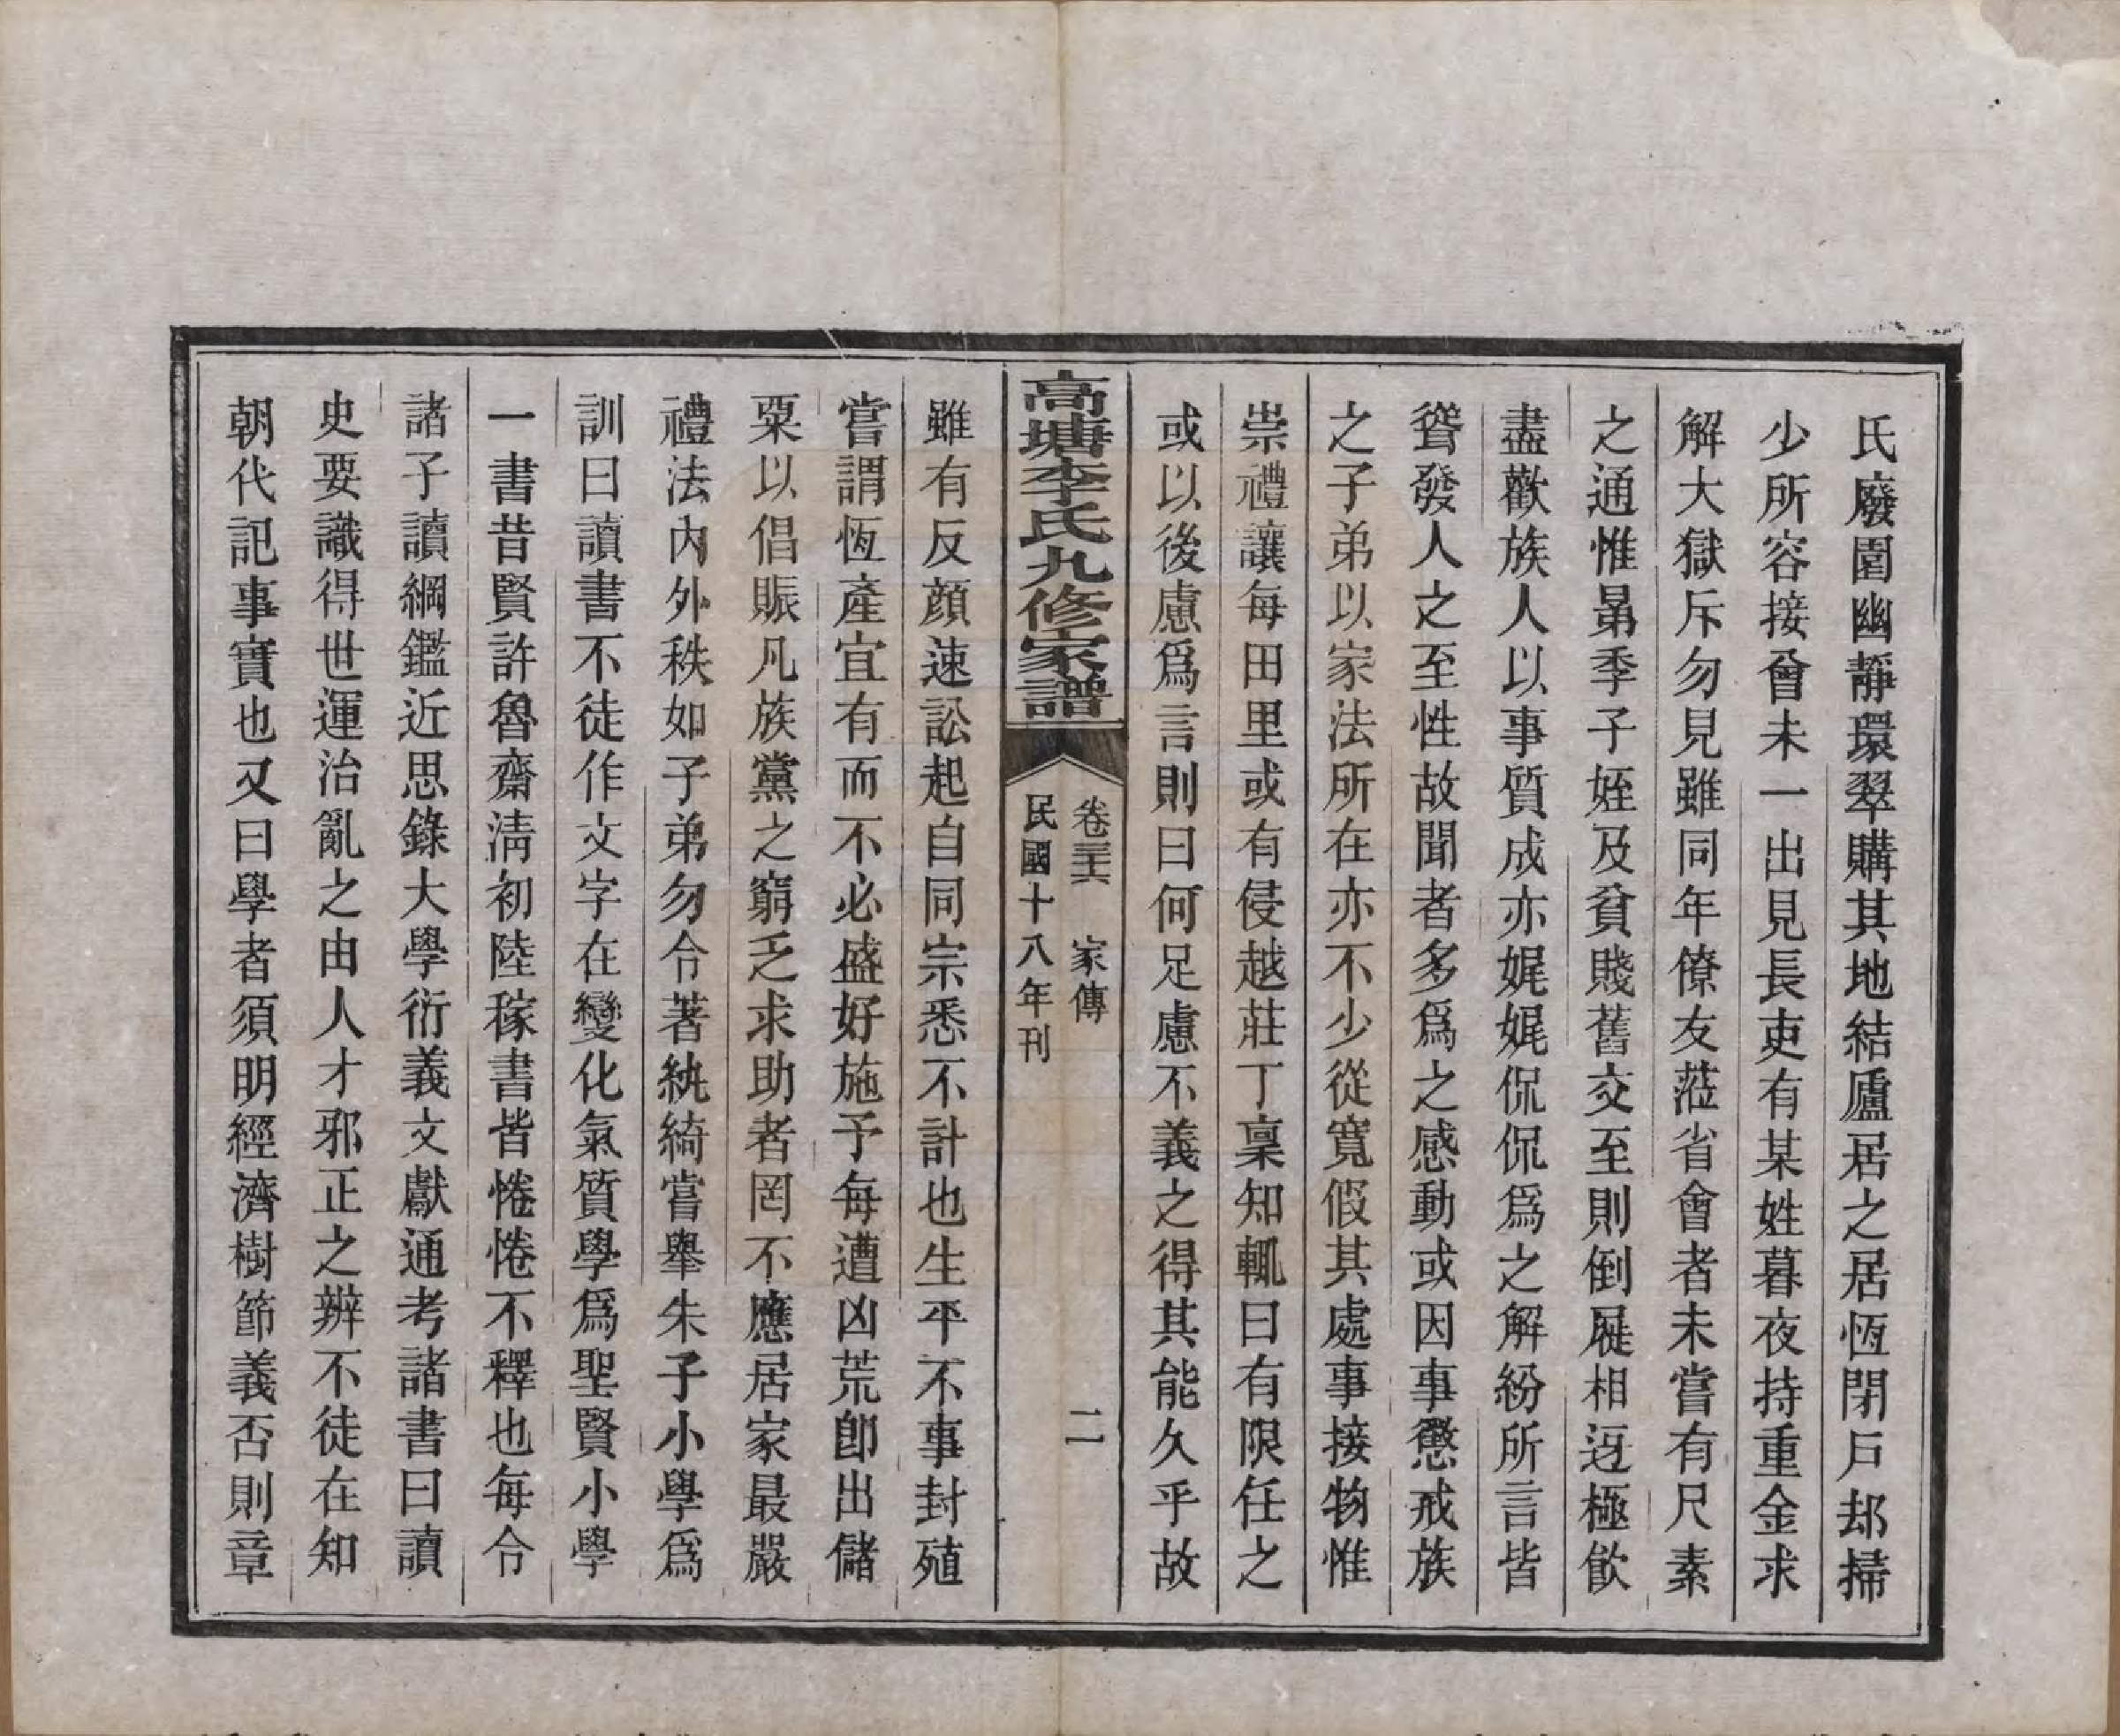 氏廢園幽靜環翠購其地結廬居之居恆閉戸却掃
少所容接曾未一出見長吏有某姓暮夜持重金求
解大獄斥勿見雖同年僚友蒞省會者未嘗有尺素
之通惟昴季子姪及貧賤舊交至則倒屣相迓極飲
盡歡族人以事質成亦娓娓侃侃爲之解紛所言皆
聳發人之至性故聞者多爲之感動或因事懲戒族
之子弟以家法所在亦不少從寬假其處事接物惟
崇禮讓每田里或有侵越莊丁稟知輒曰有限任之
或以後慮爲言則曰何足慮不義之得其能久乎故
高塘李氏九修家譜
卷三六 家傳
二
民國十八年刊
雖有反顔速訟起自同宗悉不計也生平不事封殖
嘗謂恆產宜有而不必盛好施予每遭凶荒卽出儲
粟以倡賑凡族黨之窮乏求助者罔不應居家最嚴
禮法內外秩如子弟勿令著紈綺嘗舉朱子小學爲
訓曰讀書不徒作文字在變化氣質學爲聖賢小學
一書昔賢許魯齋淸初陸稼書皆惓惓不釋也每令
諸子讀綱鑑近思錄大學衍義文獻通考諸書曰讀
史要識得世運治亂之由人才邪正之辨不徒在知
朝代記事實也又曰學者須明經濟樹節義否則章